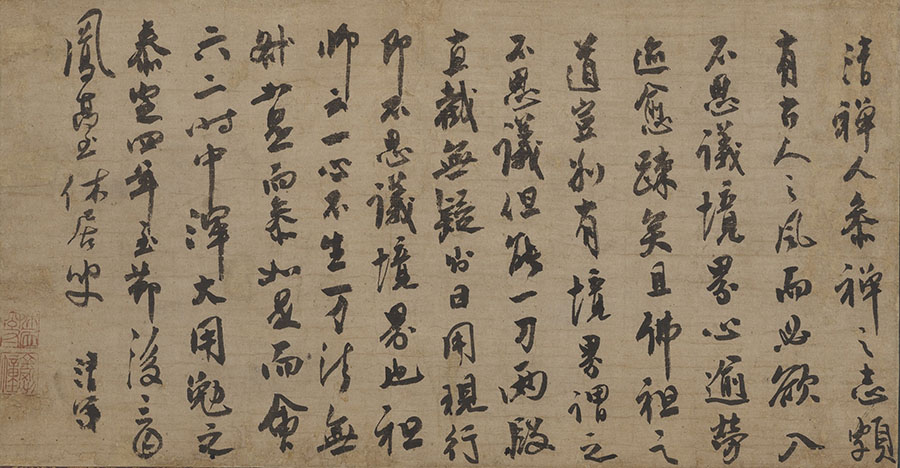 清禅人參禅之志頗
有古人之風而必欲入
不思議境界心逾勞
迹愈疎矣且佛祖之
道豈別有境界謂之
不思議但能一刀兩段
直截無疑則日用現行
即不思議境界也祖
師云一心不生万法無
咎如是而參如是而會
六二時中渾大用勉之
泰定四年至節後三日
鳳臺休居叟 清茂